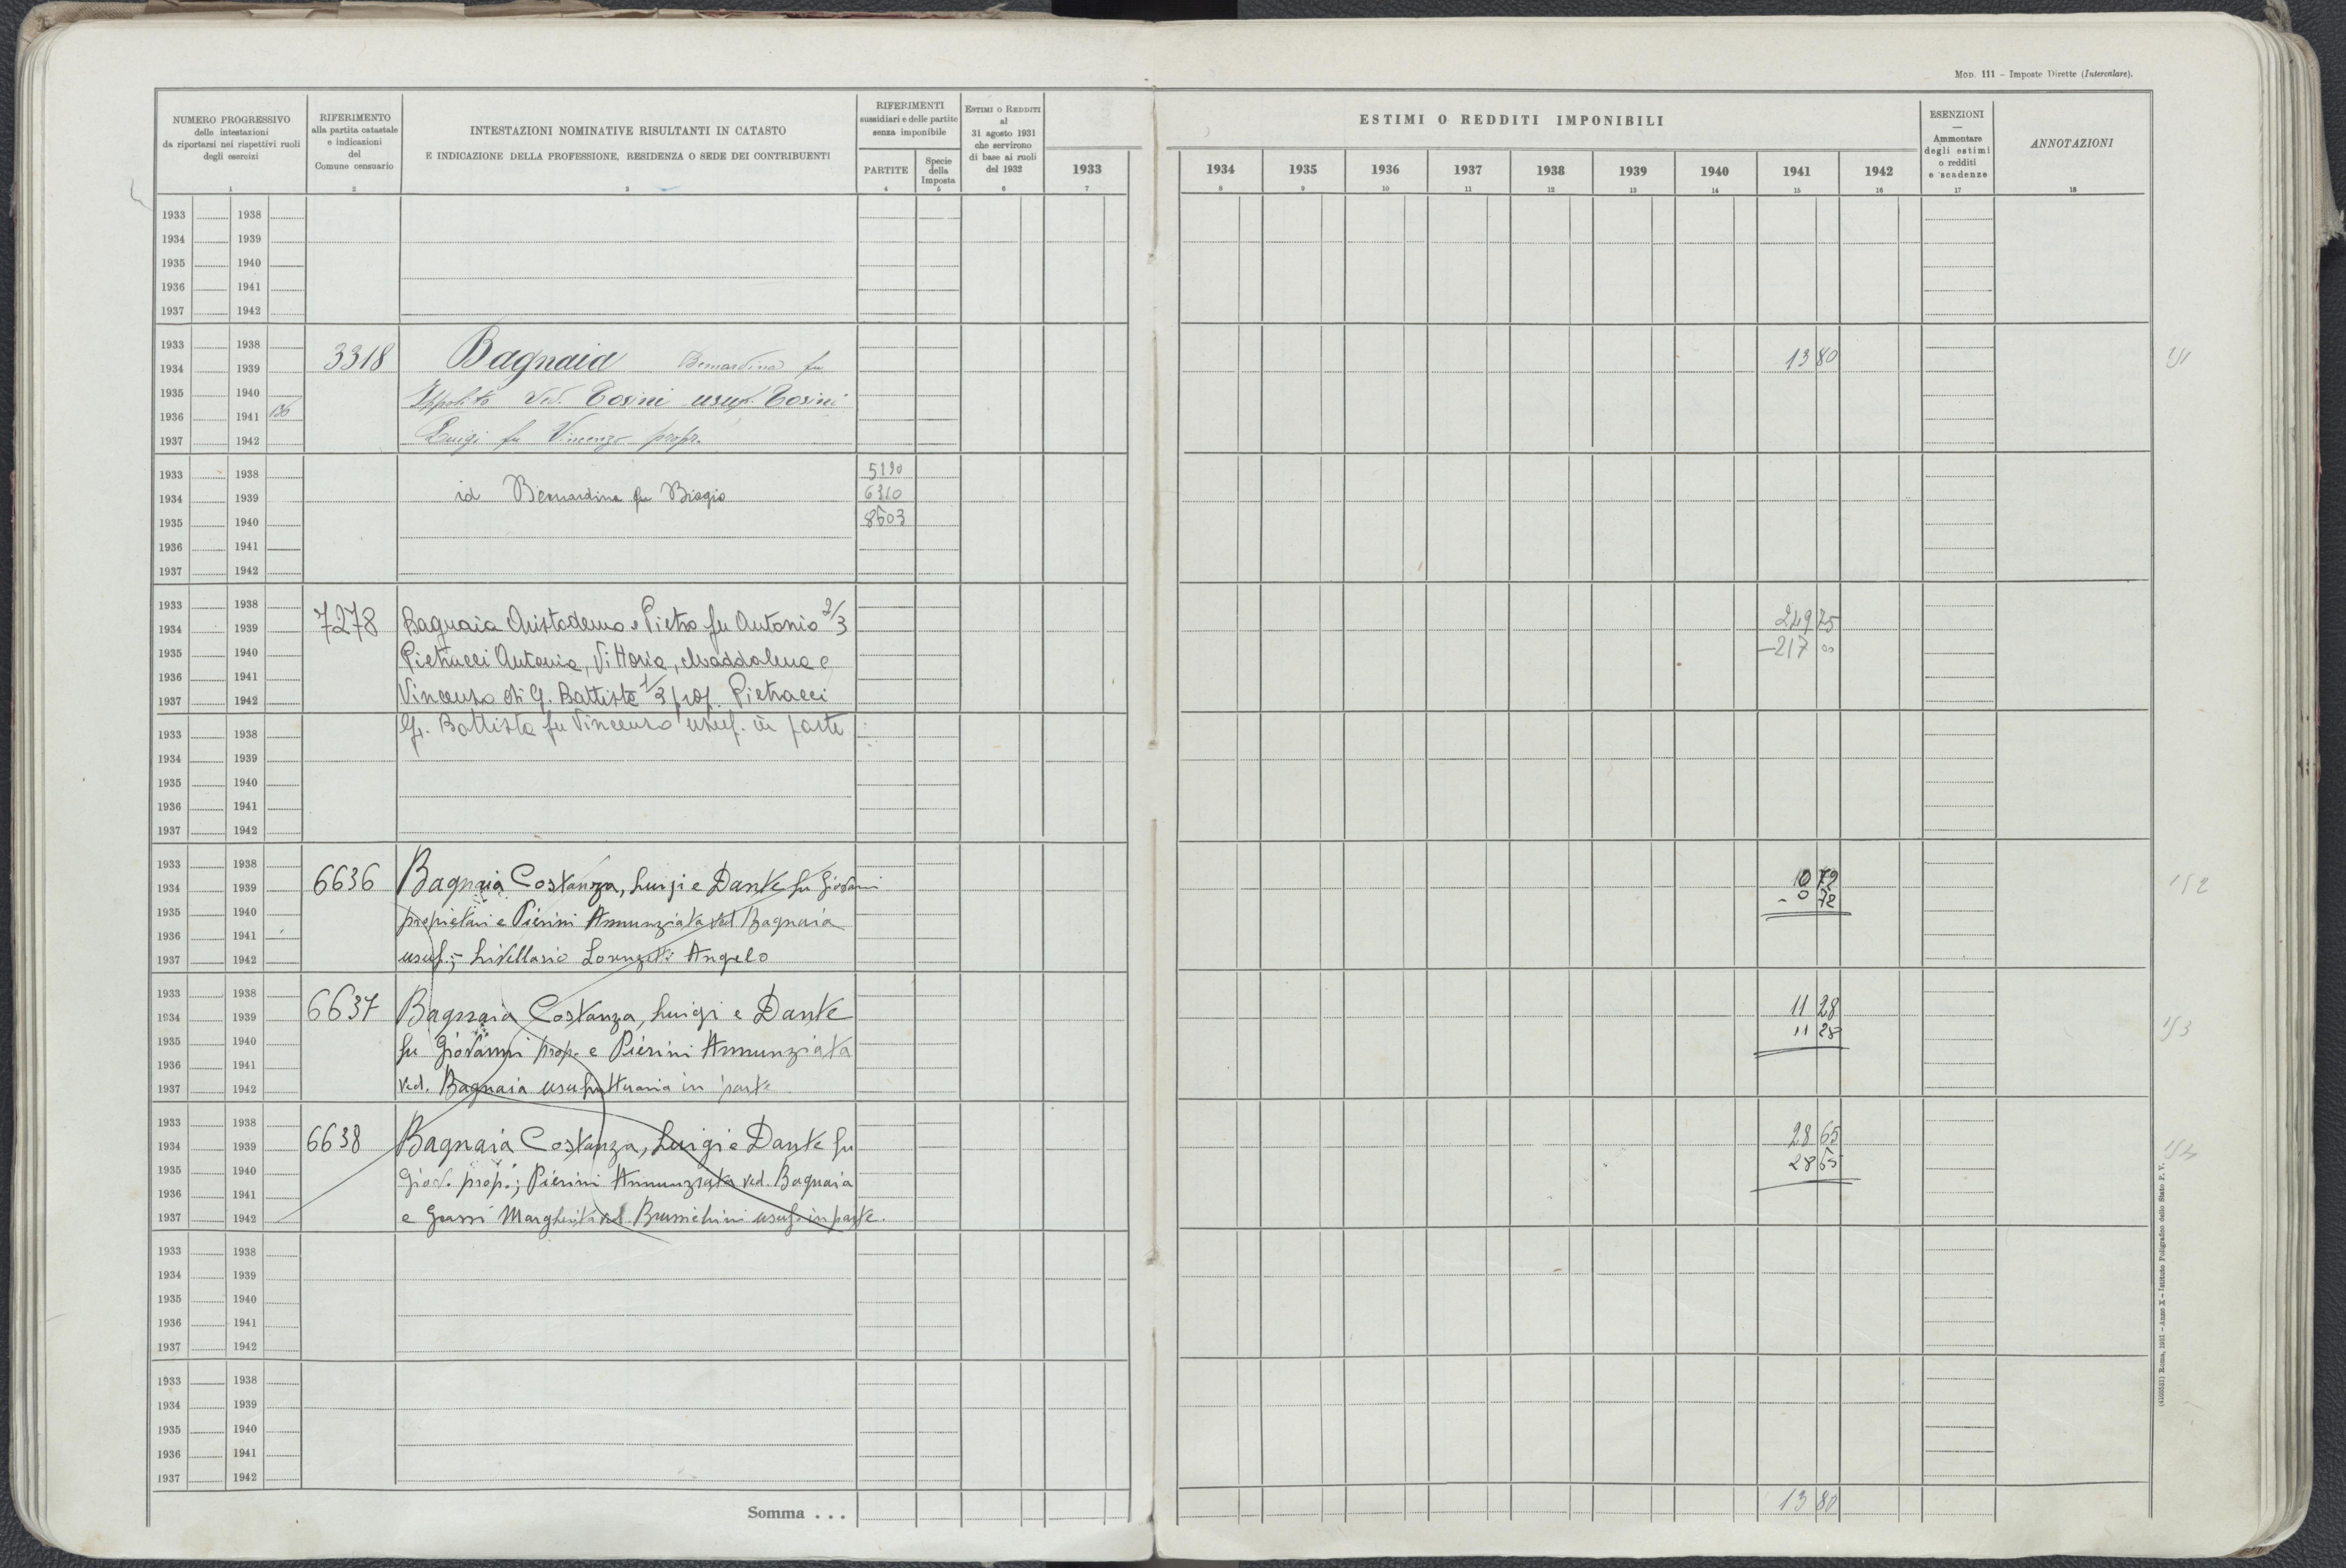 Mod. 111 – Imposte Dirette (Intercalare).
NUMERO PROGRESSIVO
delle intestazioni
da riportarsi nei rispettivi ruoli
degli esercizi
1
RIFERIMENTO
alla partita catastale
e indicazioni
del
Comune censuario
2
INTESTAZIONI NOMINATIVE RISULTANTI IN CATASTO
E INDICAZIONE DELLA PROFESSIONE, RESIDENZA O SEDE DEI CONTRIBUENTI
3
RIFERIMENTI
sussidiari e delle partite
senza imponibile
PARTITE
4
Specie
della
Imposta
5
Estimi o Redditi
al
31 agosto 1931
che servirono
di base ai ruoli
del 1932
6
1933
7
ESTIMI O REDDITI IMPONIBILI
1934 1935 1936 1937 1938 1939 1940 1941 1942
8 9 10 11 12 13 14 15 16
ESENZIONI
—
Ammontare
degli estimi
o redditi
e scadenze
17
ANNOTAZIONI
18
1933 1938
1934 1939
1935 1940
1936 1941
1937 1942
1933 1938
1934 1939 3318 Bagnaia Bernardina fu 13 80
1935 1940 Ippolito Ved. Cosini usuf. Cosini
1936 1941 136
1937 1942 Luigi fu Vincenzo propr.
1933 1938 5190
1934 1939 id Bernardina fu Biagio 6310
1935 1940 8503
1936 1941
1937 1942
1933 1938
1934 1939 7278 Bagnaia Aristodemo e Pietro fu Antonio 2/3 249 25
1935 1940 Pietrucci Antonia, Vittoria, Maddalena e –217 00
1936 1941
1937 1942 Vincenzo di G. Battista 1/3 prop. Pietrucci
1933 1938 G. Battista fu Vincenzo usuf. in parte
1934 1939
1935 1940
1936 1941
1937 1942
1933 1938
1934 1939 6636 Bagnaia Costanza, Luigi e Dante fu Giovanni 10 72
1935 1940 proprietari e Pierini Annunziata ved. Bagnaia
1936 1941
1937 1942 usuf.;- Livellario Lorenzetti Angelo
1933 1938
1934 1939 6637 Bagnaia Costanza, Luigi e Dante 11 28
1935 1940 fu Giovanni prop. e Pierini Annunziata 11 28
1936 1941
1937 1942 ved. Bagnaia usufruttuaria in parte
1933 1938
1934 1939 6638 Bagnaia Costanza, Luigi e Dante fu 28 65
1935 1940 Giov. prop.; Pierini Annunziata ved. Bagnaia 28 65
1936 1941
1937 1942 e Margherita ved. usuf. in parte.
1933 1938
1934 1939
1935 1940
1936 1941
1937 1942
1933 1938
1934 1939
1935 1940
1936 1941
1937 1942
Somma . . . 13 80
(4103531) Roma, 1931 – Anno X – Istituto Poligrafico dello Stato P. V.